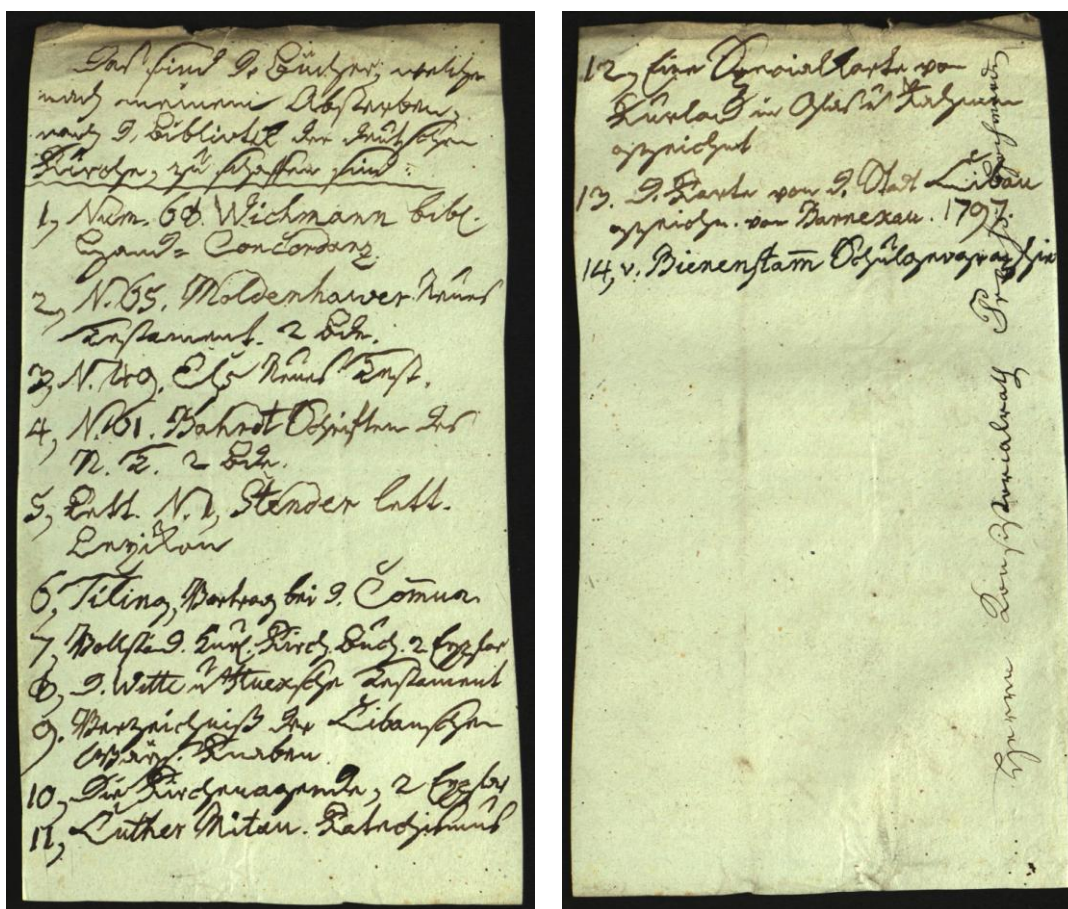 Das sind d. Bücher, welche
nach meinem Absterben,
nach d. Bibliotek der deutschen
Kirche, zu schaffen sind:
1, Num. 68. Wichmann bibl.
Hand- Concordanz.
2, N. 65. Moldenhawer Neues
Testament. 2 Bde.
3, N. 49. Neues Test.
4, N. 61. Bahrdt Schriften des
N. T. 2 Bde.
5, Lett. N. 1, Stender lett.
Lexikon
6, Tiling, Vortrag bei d. Com̅un.
7, Vollständ. Kurl. Kirch. Buch. 2 Explar
8, d. Witte u Huexsche Testament
9. Verzeichniß der Libauschen
Knaben.
10, Die Kirchenagende, 2 Explar
11, Luther Mitau. Katechismus
12, Eine Specialkarte von
Kurland in Glas u Rahmen
gezeichnet
13. d. Karte von d. Stadt Libau
gezeichn. von Barnexau. 1797.
14, v. Bienenstam̅ Schulgeographie
Herrn Konsistorialrath